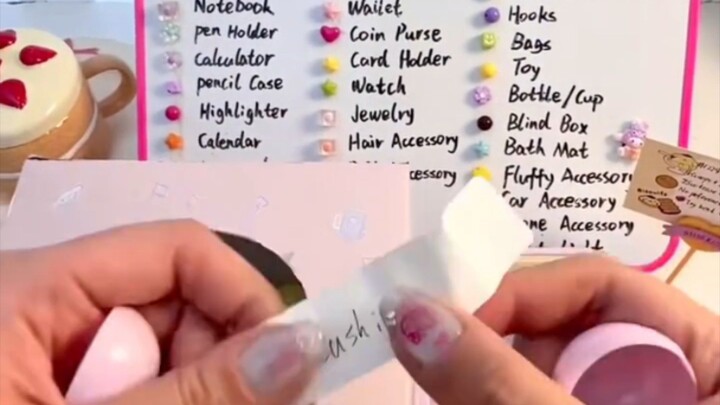 Notebook
pen Holder
Calculator
pencil Case
Highlighter
Calendar
Wallet
Coin Purse
Card Holder
Watch
Jewelry
Hair Accessory
ccessory
Hooks
Bags
Toy
Bottle/Cup
Blind Box
Bath Mat
Fluffy Accessor
Car Accessory
one Accessory
ushi